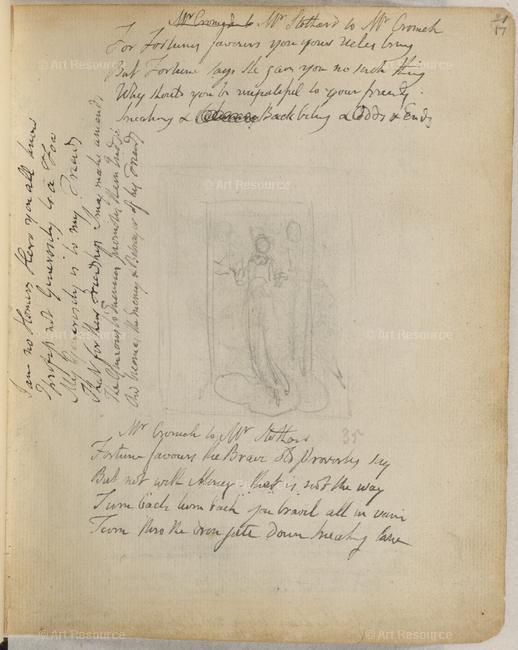 Mr Cromek to Mr Stothard to Mr Cromek
For Fortunes favours you your riches bring
But Fortune says she gave you no such thing
Why should you be ungrateful to your friends
Sneaking & Backbiting & Odds & Ends
I am no Homers Hero you all know
I profess not Generosity to a Foe
My Generosity is to my Friends
That for their Friendship I may make amends
The Generous to Enemies promotes their Ends
And becomes the Enemy & Betrayer of his Friends
35
Mr Cromek to Mr Stothard
Fortune favours the Brave old Proverbs say
But not with Money. that is not the way
Turn back turn back you travel all in vain
Turn thro the iron gate down Sneaking lane
© Art Resource
© Art Resource
© Art Resource
© Art Resource
© Art Resource
© Art Resource
© Art Resource
© Art Resource